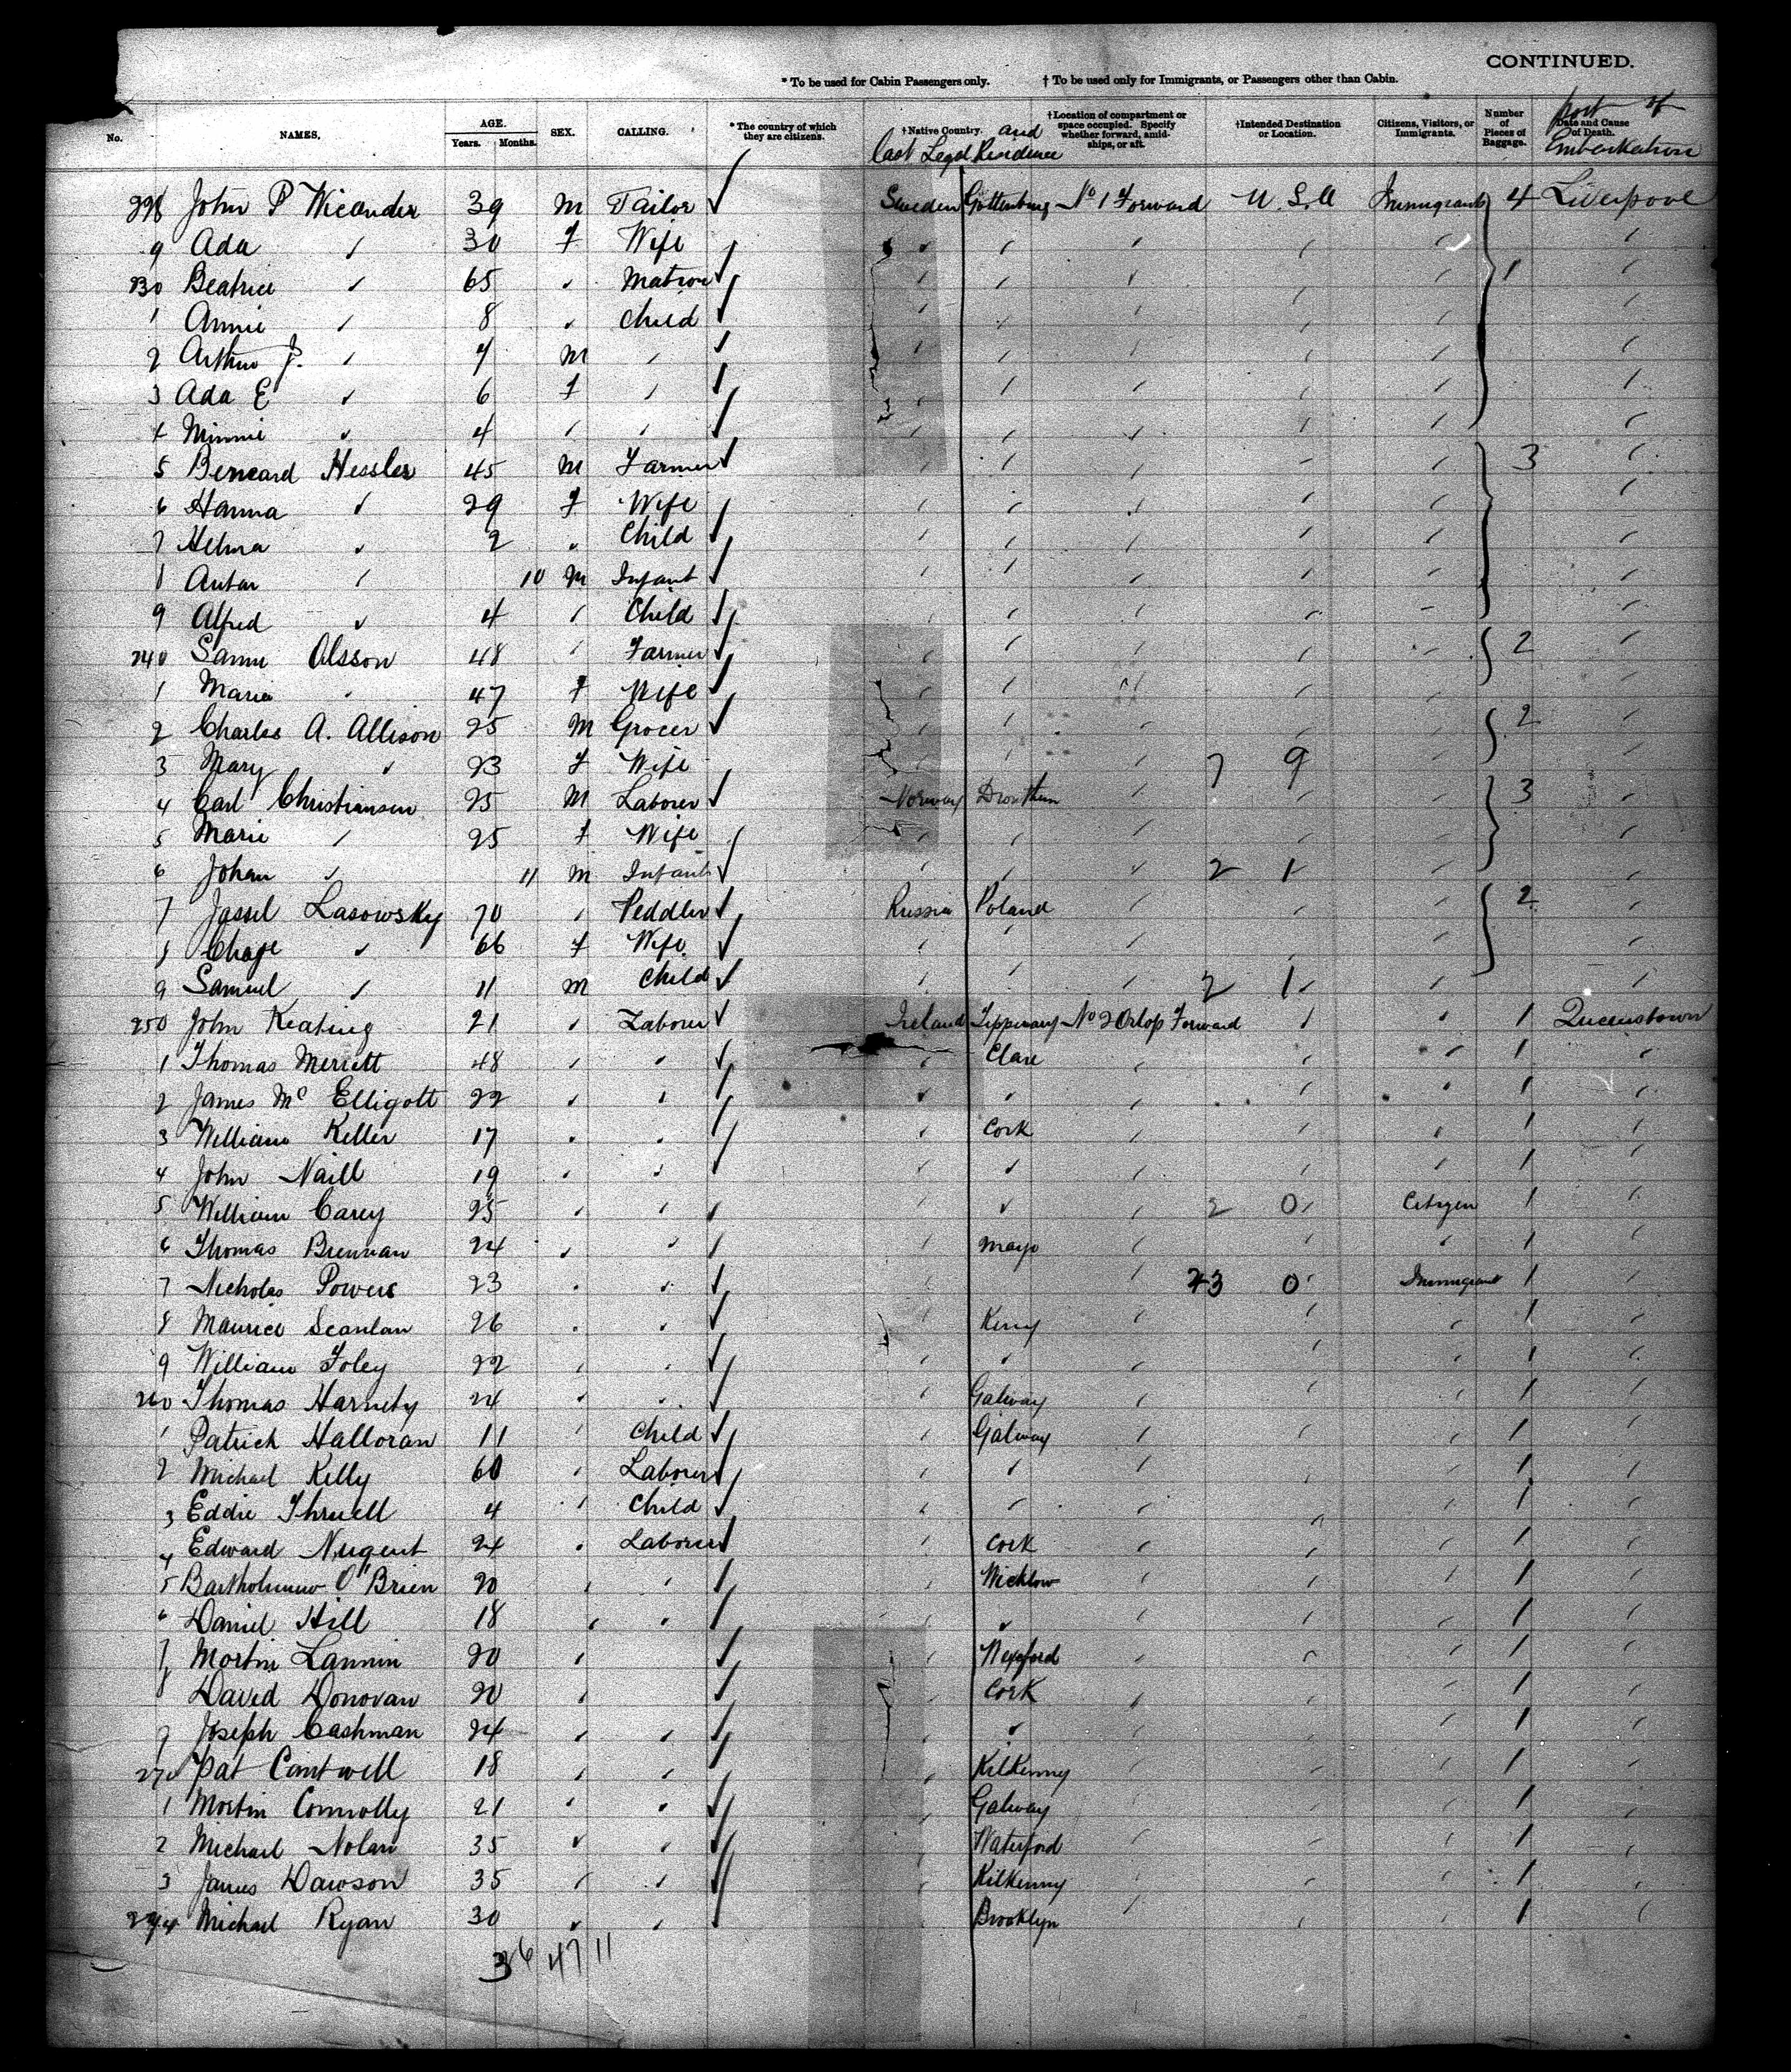 CONTINUED.
* To be used for Cabin Passengers only. † To be used only for Immigrants, or Passengers other than Cabin.
No. NAMES. AGE. Years. Months. SEX. CALLING. * The country of which they are citizens. † Native Country. and last Legal Residence †Location of compartment or space occupied. Specify whether forward, amidships, or aft. †Intended Destination or Location. Citizens, Visitors, or Immigrants. Number of Pieces of Baggage. Date and Cause of Death. port of Embarkation
228 John P Wicander 39 M Tailor ✓ Sweden Gottenburg No 1 Forward U.S.A Immigrants 4 Liverpool
9 Ada " 30 f Wife " " " " " "
230 Beatrice " 65 " Matron ✓ " " " " " 1 "
1 Annie " 8 " Child ✓ " " " " " "
2 Arthur J. " 7 M " ✓ " " " " " "
3 Ada E " 6 f " ✓ " " " " " "
4 Minnie " 4 " " ✓ " " " " " "
5 Berneard Hessler 45 M Farmer ✓ " " " " " 3 "
6 Hanna " 29 f Wife " " " " " "
7 Helma " 2 " Child ✓ " " " " " "
8 Antar " 10 M Infant ✓ " " " " " "
9 Alfred " 4 " Child ✓ " " " " " "
240 Olsson 48 " Farmer ✓ " " " " " 2 "
1 Maria " 47 f Wife ✓ " " " " " "
2 Charles A. Allison 25 M Grocer ✓ " " " " " 2 "
3 Mary " 23 f Wife " " " 7 9 " "
4 Carl Christiansen 25 M Laborer ✓ Norway Dronthem " " " 3 "
5 Marie " 25 f Wife " " " " " "
6 Johan " 11 M Infant ✓ " " " 2 1 " "
7 Lasowsky 70 " Peddler ✓ Russia Poland " " " 2 "
8 " 66 f Wife ✓ " " " " " "
9 Samuel " 11 M Child ✓ " " " 2 1 " "
250 John Keating 21 " Laborer ✓ Ireland Tipperary No 2 Orlop Forward " " 1 Queenstown
1 Thomas Merrett 48 " " ✓ " Clare " " " 1 "
2 James Mc Elligott 22 " " ✓ " " " " " 1 "
3 William Keller 17 " " ✓ " Cork " " " 1 "
4 John Naill 19 " " ✓ " " " " " 1 "
5 William Carey 25 " " ✓ " " " 2 0 Citizen 1 "
6 Thomas Brennan 24 " " ✓ " Mayo " " " 1 "
7 Nicholas Powers 23 " " ✓ " " 23 0 Immigrant 1 "
8 Maurice Scanlan 26 " " ✓ " Kerry " " " 1 "
9 William Foley 22 " " ✓ " " " " " 1 "
260 Thomas Harnety 24 " " ✓ " Galway " " " 1 "
1 Patrick Halloran 11 " Child ✓ " Galway " " " 1 "
2 Michael Kelly 60 " Laborer ✓ " " " " " 1 "
3 Eddie 4 " Child ✓ " " " " " 1 "
4 Edward Nugent 24 " Laborer ✓ " Cork " " " 1 "
5 Bartholomew O'Brien 20 " " ✓ " Wicklow " " " 1 "
6 Daniel Hill 18 " " ✓ " " " " " 1 "
7 Martin Lannin 20 " ✓ " Wexford " " " 1 "
8 David Donovan 20 " ✓ " Cork " " " 1 "
9 Joseph Cashman 24 " " ✓ " " " " " 1 "
270 Pat Cantwell 18 " " ✓ " Kilkenny " " " 1 "
1 Martin Connolly 21 " " ✓ " Galway " " " 1 "
2 Michael Nolan 35 " " ✓ " Waterford " " " 1 "
3 James Dawson 35 " " ✓ " Kilkenny " " " 1 "
274 Michael Ryan 30 " " ✓ " Brooklyn " " " 1 "
36 47 11